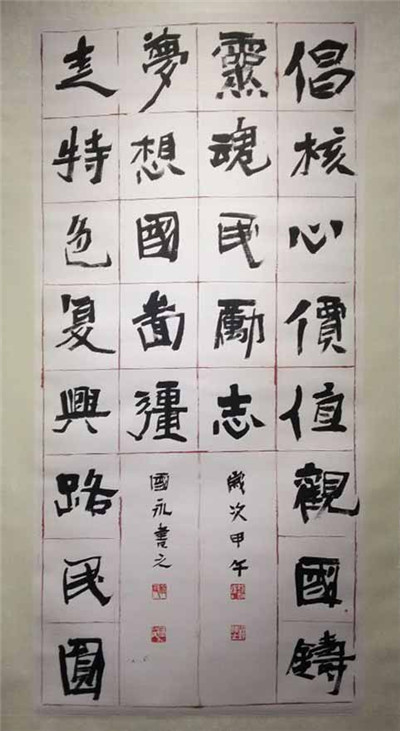 倡核心價值觀國鑄
靈魂民勵志
歲次甲午
走特色复興路民圓
夢想國啚彊
國永書之